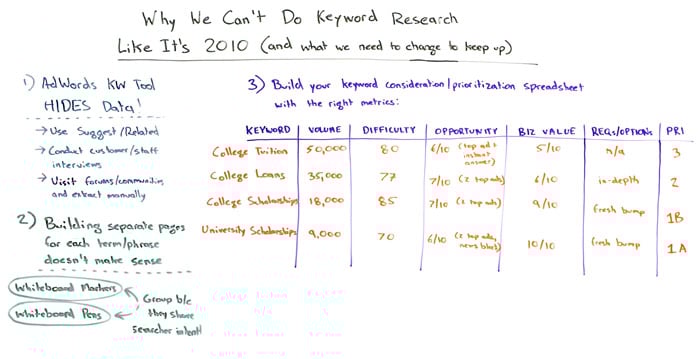 Why We Can't Do Keyword Research
Like It's 2010 (and what we need to change to keep up)
1) AdWords KW Tool
HIDES Data!
→ Use Suggest/Related
→ Conduct customer/staff
interviews
→ Visit forums/communities
and extract manually
2) Building separate pages
for each term/phrase
doesn't make sense
Whiteboard Markers
Whiteboard Pens
Group b/c
they share
searcher intent!
3) Build your keyword consideration/prioritization spreadsheet
with the right metrics:
KEYWORD VOLUME DIFFICULTY OPPORTUNITY BIZ VALUE REQs/OPTIONS PRI
College Tuition 50,000 80 6/10 (top ad + instant answer) 5/10 n/a 3
College Loans 35,000 77 7/10 (2 top ads) 6/10 in-depth 2
College Scholarships 18,000 85 7/10 (2 top ads) 9/10 fresh bump 1B
University Scholarships 9,000 70 6/10 (2 top ads, news block) 10/10 fresh bump 1A